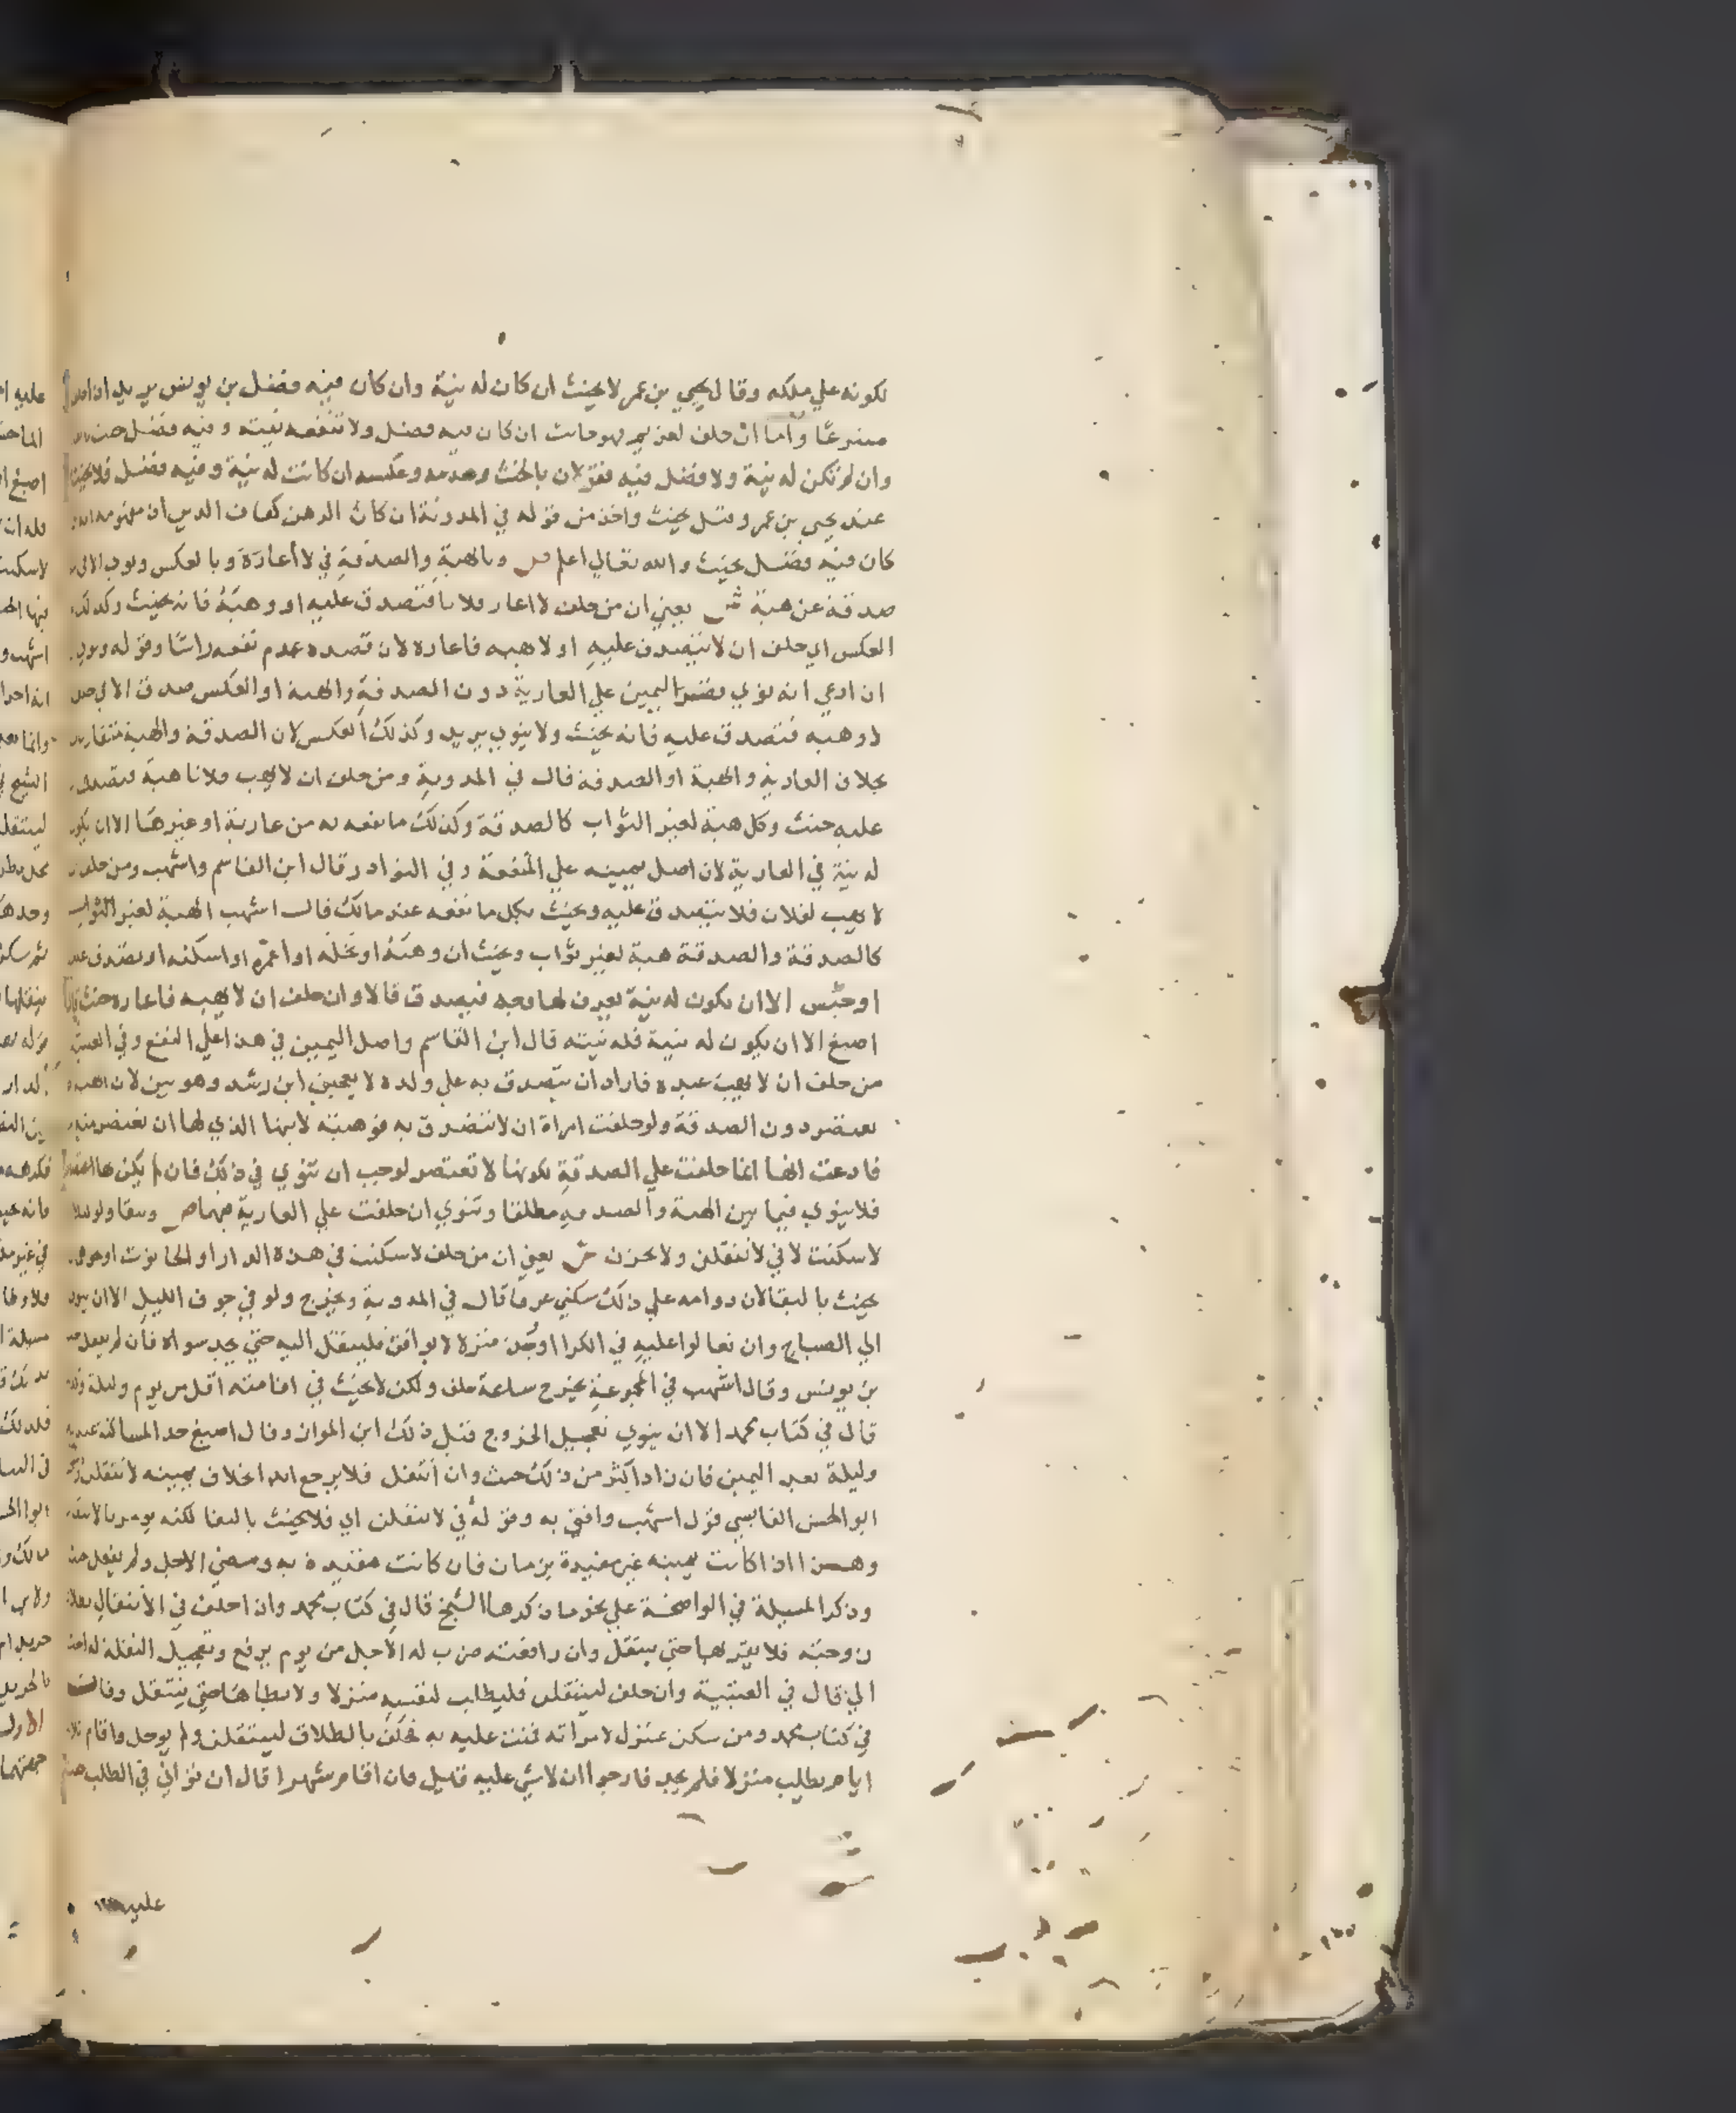 لكونه علي ملكه وقال يحيي بن عمر لا يحنث ان كان له نية وان كان فيه فضل بن يونس يريد ان
متبرعا واما ان حلف لغريم فهو حانث ان كان فيه فضل ولا تنفعه نيته وفيه فضل حنث
وان لم تكن له نية ولا فضل فيه فقولان بالحنث وعدمه وعكسه ان كانت له نية وفيه فضل فلا يحنث
عند يحيي بن عمر وقيل يحنث واخذ من قوله في المدونة ان كان الرهن كفاف الدين ان مفهومه
كان فيه فضل يحنث والله تعالي اعلم ص وبالهبة والصدقة في لا أعاره وبالعكس ونوي الا في
صدقة عن هبة ش يعني ان من حلف لا اعار فلانا فتصدق عليه او وهبه فانه يحنث وكذلك
العكس اي حلف ان لا يتصدق عليه او لا هبه فاعاره لان قصده عدم نفعه راسا وقوله ونوي
ان ادعي انه نوي بقصر اليمين علي العارية دون الصدقة والهبة او العكس صدق الا في حلف
لا وهبه فتصدق عليه فانه يحنث ولا ينوي يريد وكذلك العكس لان الصدقة والهبة متقاربة
بخلاف العارية والهبة او الصدقة قال في المدونة ومن حلف ان لا يهب فلانا هبة فتصدق
عليه حنث وكل هبة لغير الثواب كالصدقة وكذلك ما نفعه به من عارية او غيرها الا ان يكون
له نية في العارية لان اصل يمينه علي المنفعة وفي النوادر قال ابن القاسم واشهب ومن حلف
لا يهب لفلان فلا يتصدق عليه ويحنث بكل ما نفعه عند مالك قال اشهب الهبة لغير الثواب
كالصدقة والصدقة هبة لغير ثواب ويحنث ان وهبه او نحله او اعمره او اسكنه او تصدق عليه
او حبس الا ان يكون له نية يعرف لها وجه فيصدق قالا وان حلف ان لا يهبه فاعاره حنث قال
اصبغ الا ان يكون له نية فله نيته قال ابن القاسم واصل اليمين في هذا علي النفع وفي العتبية
من حلف ان لا يهب عبده فاراد ان يتصدق به علي ولده لا يعجبني ابن رشد وهو بين لان الهبة
تعتصر دون الصدقة ولو حلفت امراة ان لا تتصدق به فوهبته لابنها الذي لها ان تعتصر منه
فادعت انها انما حلفت علي الصدقة لكونها لا تعتصر لوجب ان تنوي في ذلك فان لم يكن لها
فلا ينوي فيما بين الهبة والصدقة مطلقا وتنوي ان حلفت علي العارية فيهما ص وببقا ولو ليلا
لا سكنت لا في لا نتقلن ولا بخزن ش يعني ان من حلف لا سكنت في هذه الدار او الحانوت
يحنث بالبقا لان دوامه علي ذلك سكني عرفا قال في المدونة ويخرج ولو في جوف الليل الا ان ينوي
الي الصباح وان تعالوا عليه في الكرا او وجد منزلا لا يوافق فلينتقل اليه حتي يجد سواه فان لم يفعل حنث
بن يونس وقال اشهب في المجموعة يخرج ساعة حلف ولكن لا يحنث في اقامته اقل من يوم وليلة
قال في كتاب محمد الا ان ينوي تعجيل الخروج قبل ذلك ابن المواز وقال اصبغ حد المساكنة عنده يوم
وليلة بعد اليمين فان زاد اكثر من ذلك حنث وان انتقل فلا يرجع ابدا بخلاف يمينه لا نتقلن
ابو الحسن القابسي قول اشهب وافتي به وقوله في لا نتقلن اي فلا يحنث بالبقا لكنه يومر بالانتقال
وهذا اذا كانت يمينه غير مقيدة بزمان فان كانت مقيدة به ومضي الاجل ولم يفعل حنث
وذكر المسيلة في الواضحة علي نحو ما ذكرها الشيخ قال في كتاب محمد وان احلف في الانتقال بطلاق
زوجته فلا يقربها حتي ينتقل وان رافعته ضرب له الاجل من يوم يرفع وتعجيل النقلة له
الي قال في العتبية وان حلف لينتقلن فليطلب لنفسه منزلا ولا يطاها حتي ينتقل وقال
في كتاب محمد ومن سكن منزل لامراته فمنت عليه به فحلف بالطلاق لينتقلن ولم يوجل واقام ثلاثة
ايام يطلب منزلا فلم يجد فارجوا ان لا شي عليه قيل فان اقام شهرا قال ان تواني في الطلب حنث
عليه